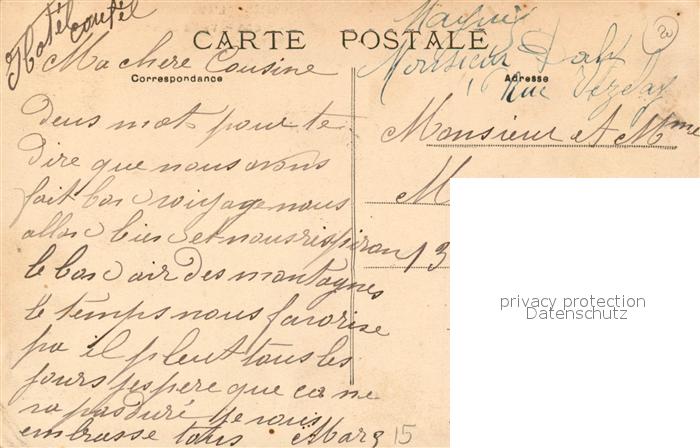 Hotel
coutel
CARTE POSTALE
Ma chere Cousine
Correspondance
Deus mots pour te
dire que nous avons
fait bon voiyage nous
allon bien et nous respiron
le bon air des montagnes
le temps nous favorise
pa il pleut tous les
jours j'espere que ca ne
va pas duré je vous
embrasse tous Marg 15
Monsieur
Adresse
1 Rue Vezelay
Monsieur et Mme
M
13
20
privacy protection
Datenschutz